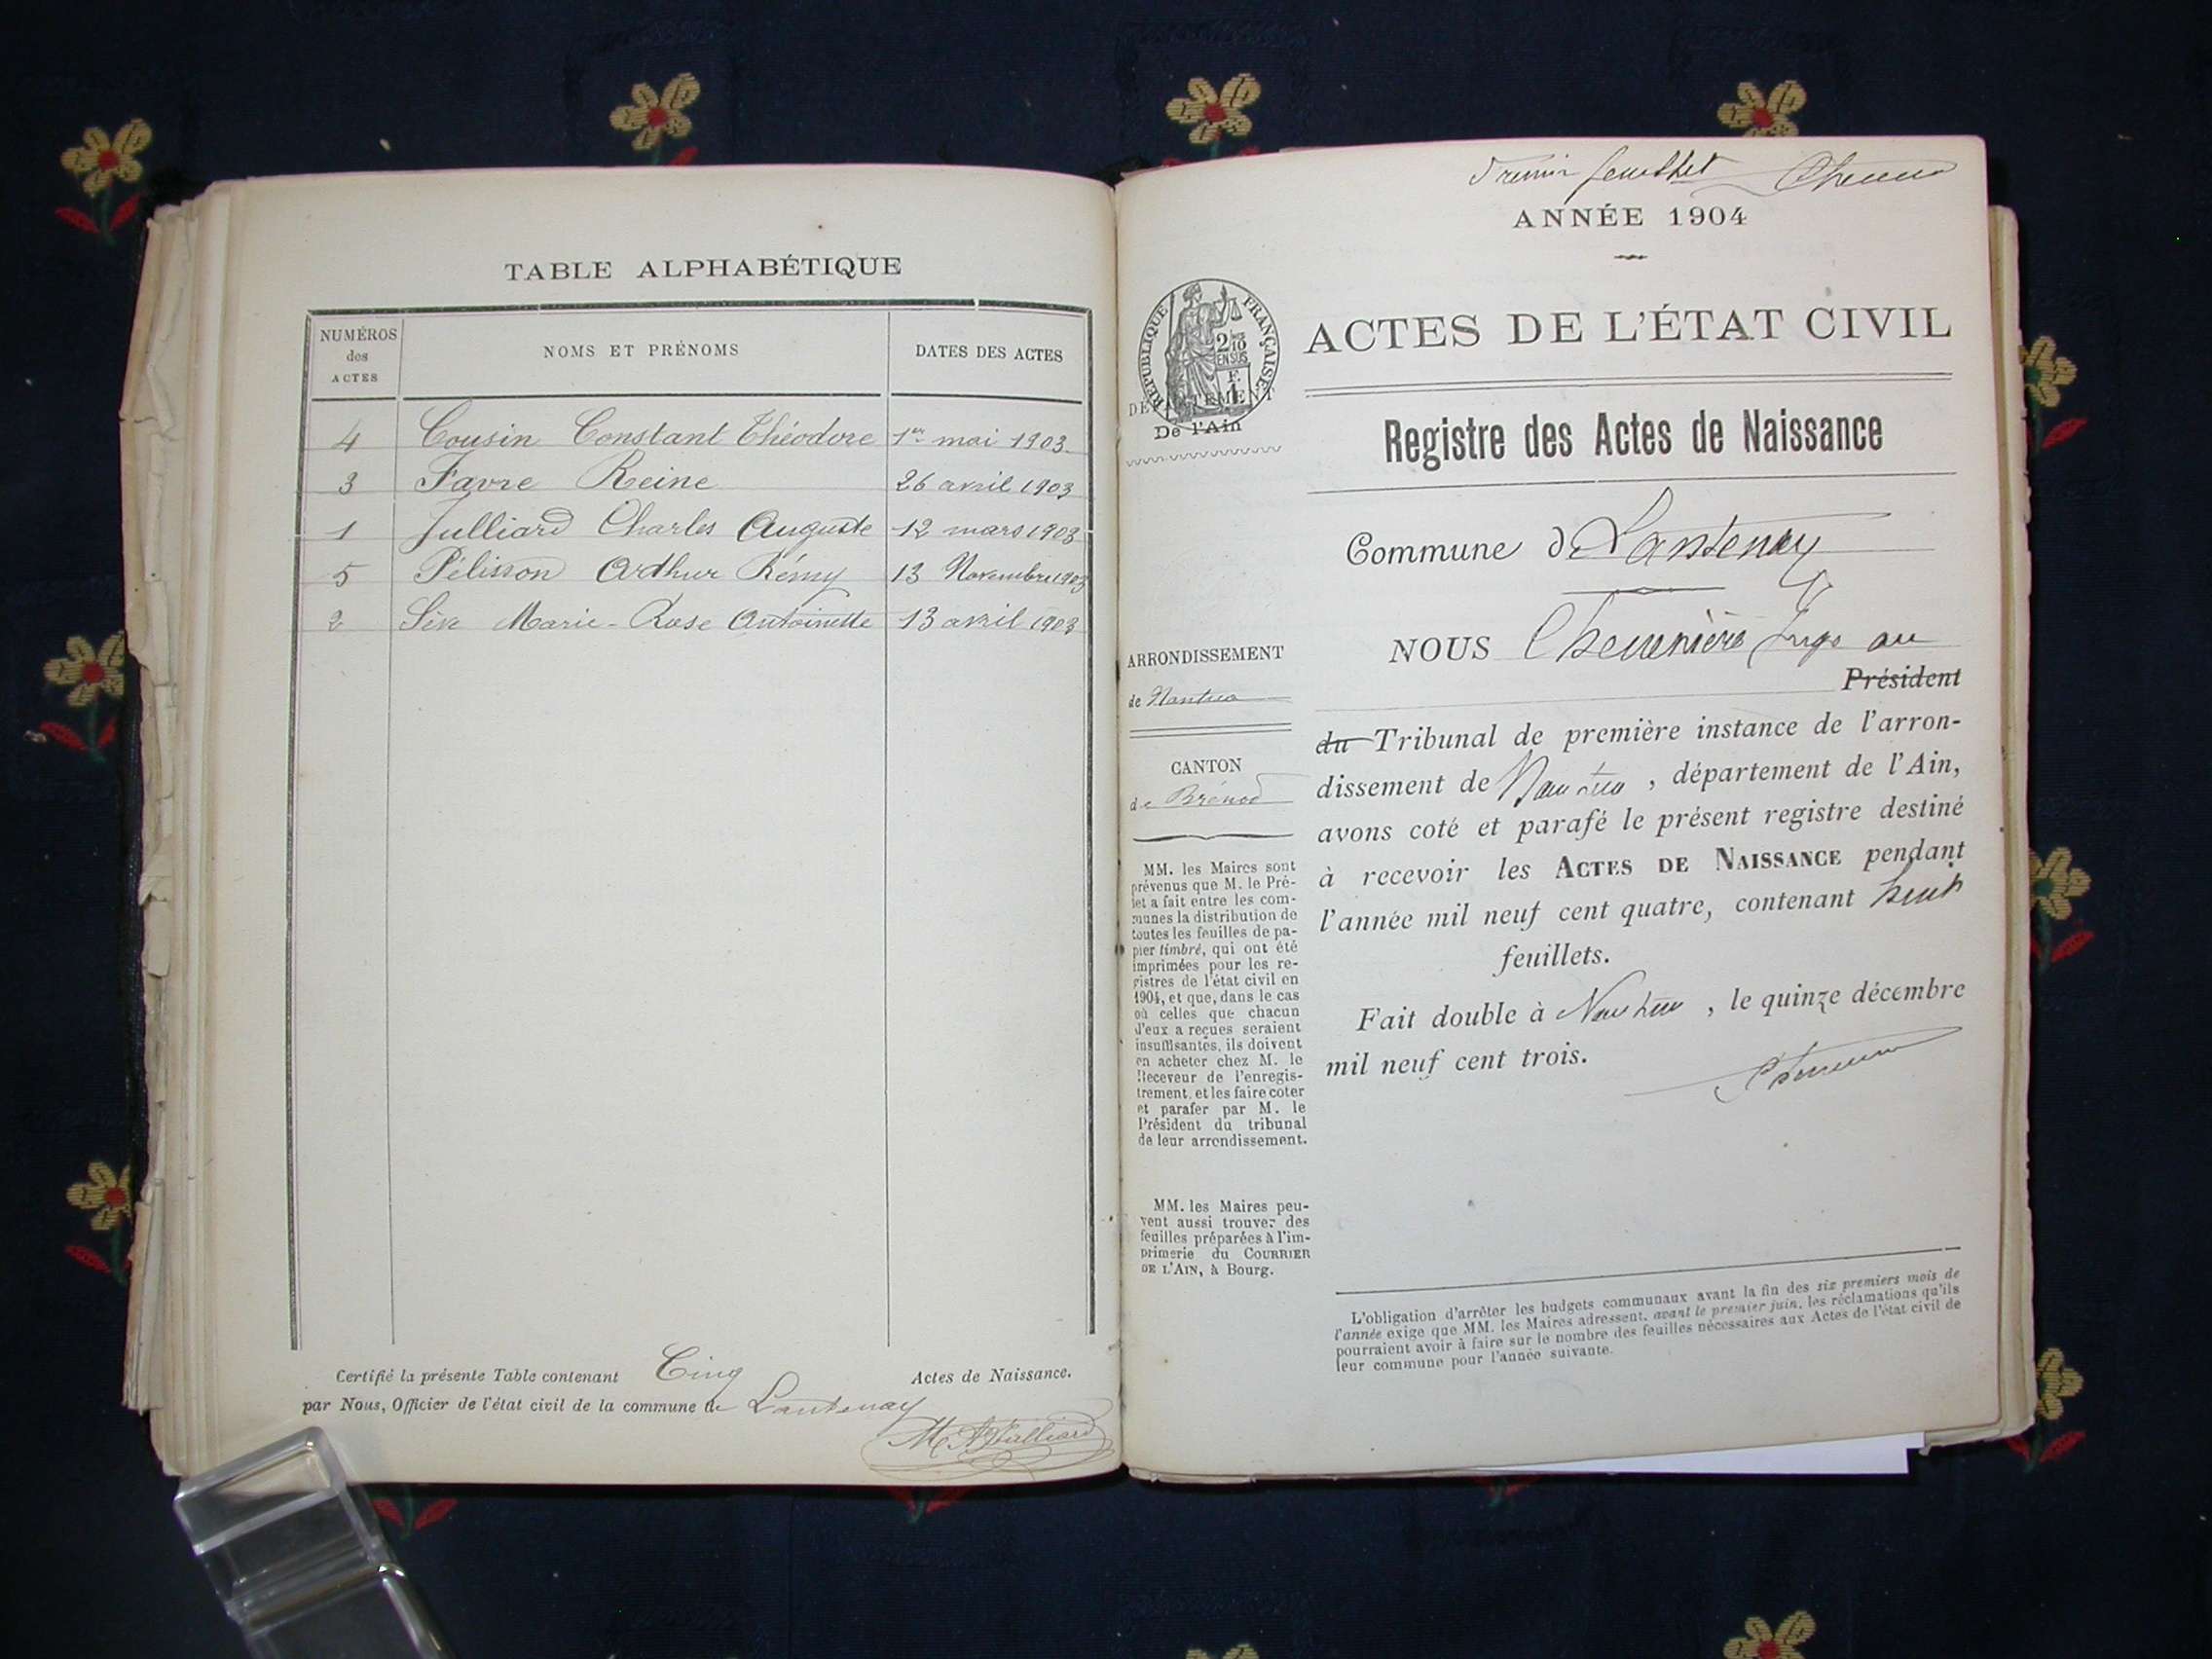 TABLE ALPHABÉTIQUE
NUMÉROS
des
ACTES
NOMS ET PRÉNOMS
DATES DES ACTES
4 Cousin Constant Théodore 1er mai 1903
3 Favre Reine 26 avril 1903
1 Julliard Charles Auguste 12 mars 1903
5 Pélisson Arthur Rémy 13 Novembre 1903
2 Sève Marie-Rose Antoinette 13 avril 1903
Certifié la présente Table contenant Cinq Actes de Naissance.
par Nous, Officier de l'état civil de la commune de Lantenay
Julliard
Premier feuillet
ANNÉE 1904
RÉPUBLIQUE FRANÇAISE
2/10
EN SUS
F.
1
DÉPARTEMENT
De l'Ain
ACTES DE L'ÉTAT CIVIL
Registre des Actes de Naissance
Commune de Lantenay
ARRONDISSEMENT
de Nantua
CANTON
de Brénod
MM. les Maires sont
prévenus que M. le Pré-
fet a fait entre les com-
munes la distribution de
toutes les feuilles de pa-
pier timbré, qui ont été
imprimées pour les re-
gistres de l'état civil en
1904, et que, dans le cas
où celles que chacun
d'eux a reçues seraient
insuffisantes, ils doivent
en acheter chez M. le
Receveur de l'enregis-
trement, et les faire coter
et parafer par M. le
Président du tribunal
de leur arrondissement.
MM. les Maires peu-
vent aussi trouver des
feuilles préparées à l'im-
primerie du COURRIER
DE L'AIN, à Bourg.
NOUS juge au
Président
du Tribunal de première instance de l'arron-
dissement de Nantua, département de l'Ain,
avons coté et parafé le présent registre destiné
à recevoir les ACTES DE NAISSANCE pendant
l'année mil neuf cent quatre, contenant huit
feuillets.
Fait double à Nantua, le quinze décembre
mil neuf cent trois.
L'obligation d'arrêter les budgets communaux avant la fin des six premiers mois de
l'année exige que MM. les Maires adressent, avant le premier juin, les réclamations qu'ils
pourraient avoir à faire sur le nombre des feuilles nécessaires aux Actes de l'état civil de
leur commune pour l'année suivante.